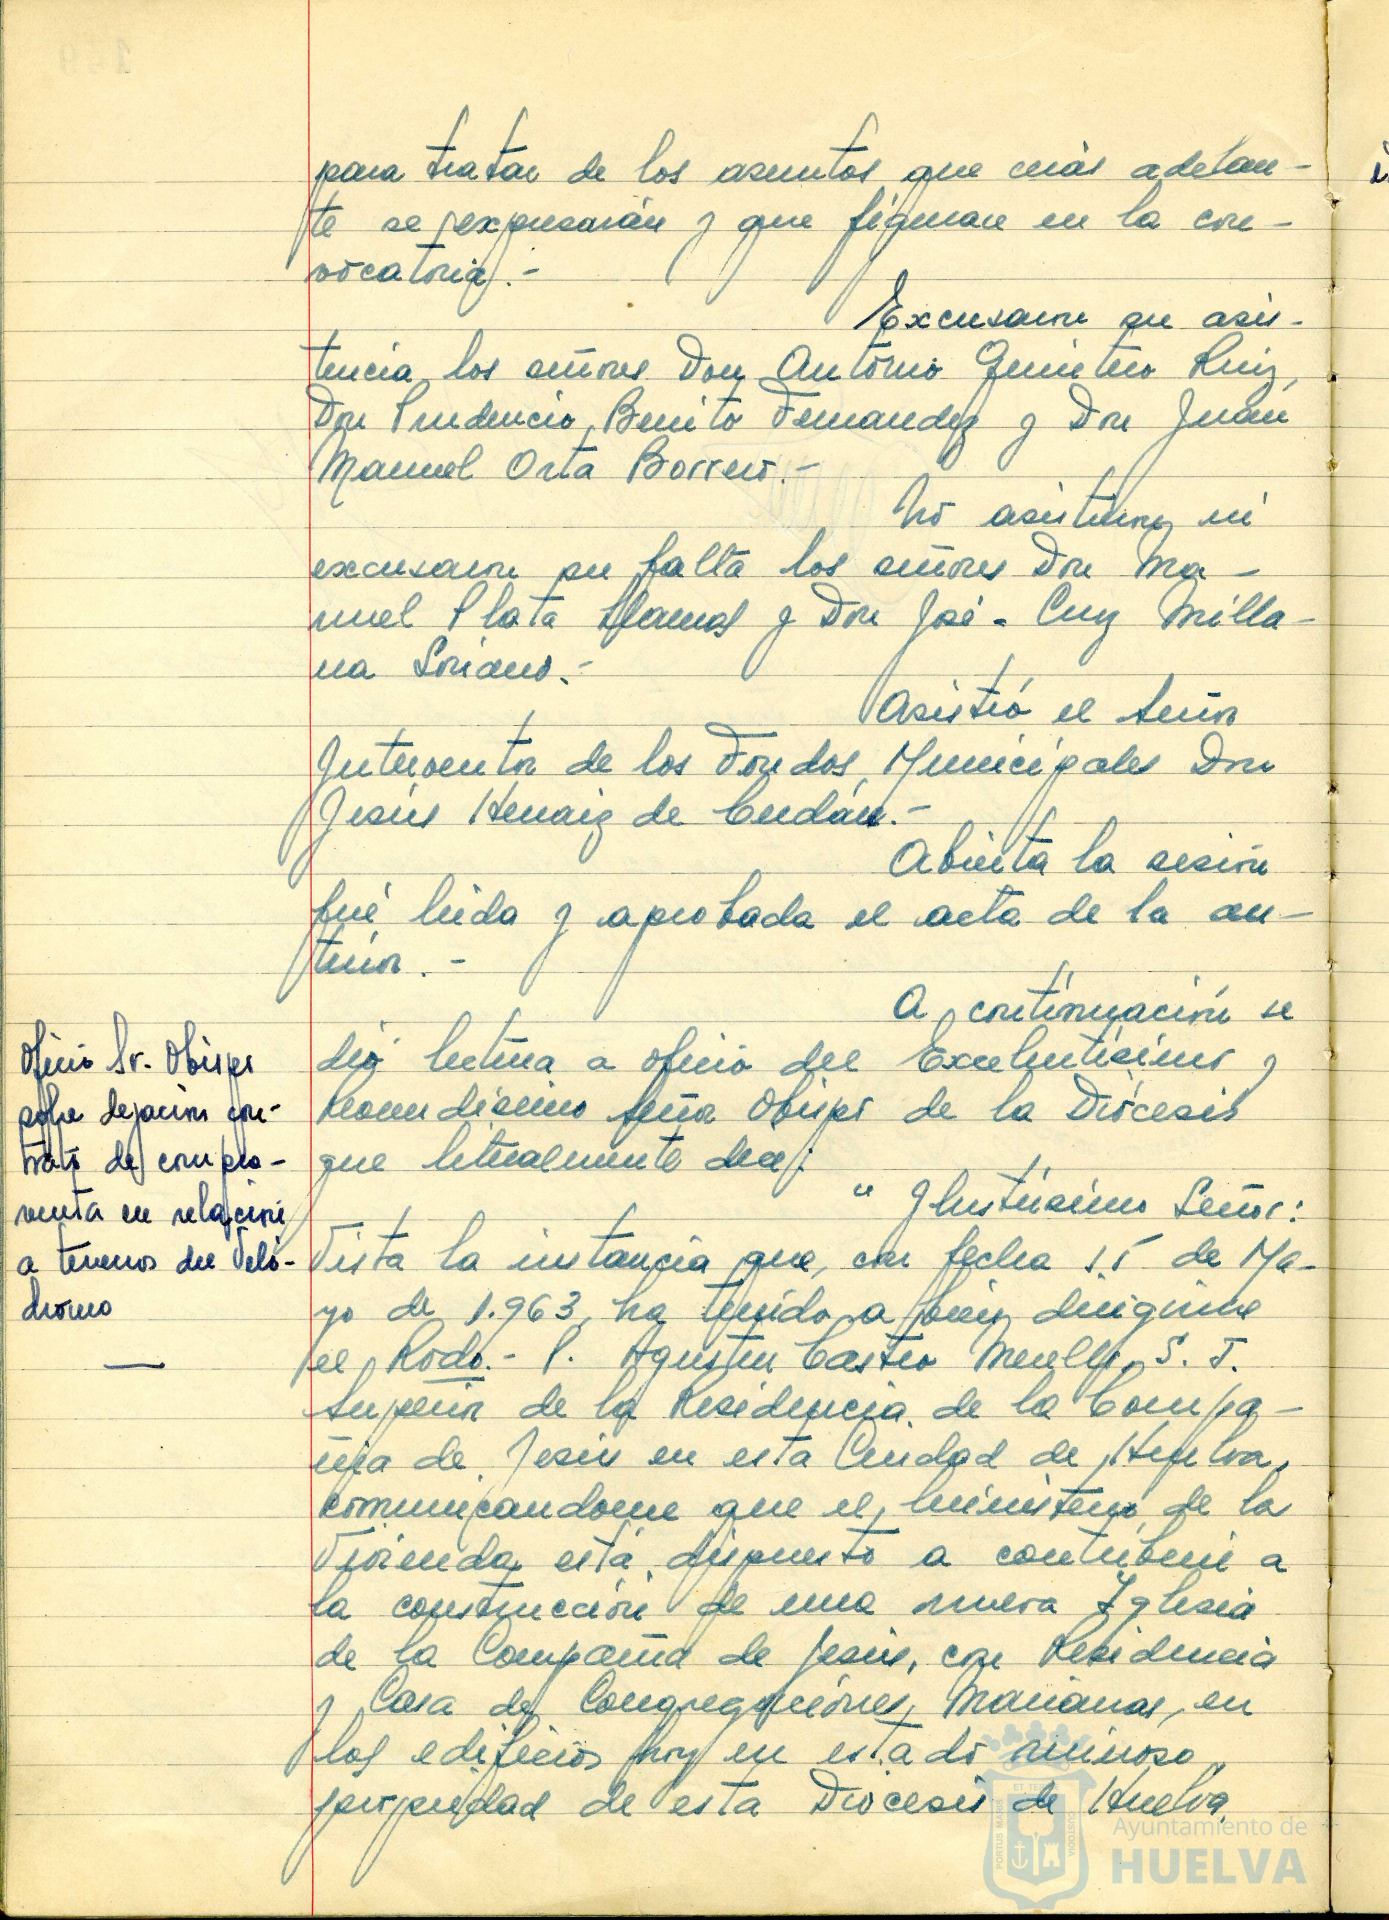 para tratar de los asuntos que más adelan-
te se expresarán y que figuran en la con-
vocatoria.-
Excusaron su asis-
tencia los señores Don Antonio Quintero Ruiz,
Don Prudencio Benito Fernandez y Don Juan
Manuel Orta Borrero.-
No asistieron ni
excusaron su falta los señores Don Ma-
nuel Plata Llamas y Don José-Cruz Milla-
na Soriano.-
Asistió el Señor
Interventor de los Fondos Municipales Don
Jesús Henaiz de
Abierta la sesión
fué leida y aprobada el acta de la an-
terior.-
A continuación se
dió lectura a oficio del Excelentísimo y
Reverendísimo Señor Obispo de la Diócesis
que literalmente dice:
Oficio Sr. Obispo
sobre dejacion con-
trato de compra-
venta en relación
a terrenos del Veló-
dromo
" Ilustrísimo Señor:
Vista la instancia que, con fecha 15 de Ma-
yo de 1.963, ha tenido a bien dirigirme
el Rvdo.- P. Agustín Castro S. J.
Superior de la Residencia de la Compa-
ñia de Jesús en esta Ciudad de Huelva,
comunicandome que el Ministerio de la
Vivienda está dispuesto a contribuir a
la construcción de una nueva Iglesia
de la Compañía de Jesús, con Residencia
y Casa de Congregaciones Marianas, en
los edificios hoy en estado ruinoso,
propiedad de esta Diócesis de Huelva,
Ayuntamiento de
HUELVA